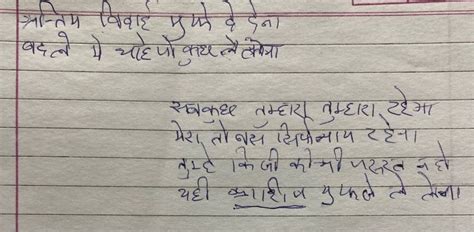 अन्तिम विदाई मुझे दे देना
बदले में चाहे जो कुछ ले लेना
सबकुछ तुम्हारा तुम्हारा रहेगा
मेरा तो बस सिर्फ नाम रहेगा
तुम्हे किसी की भी जरुरत न हो
यही मुझसे ले लेना